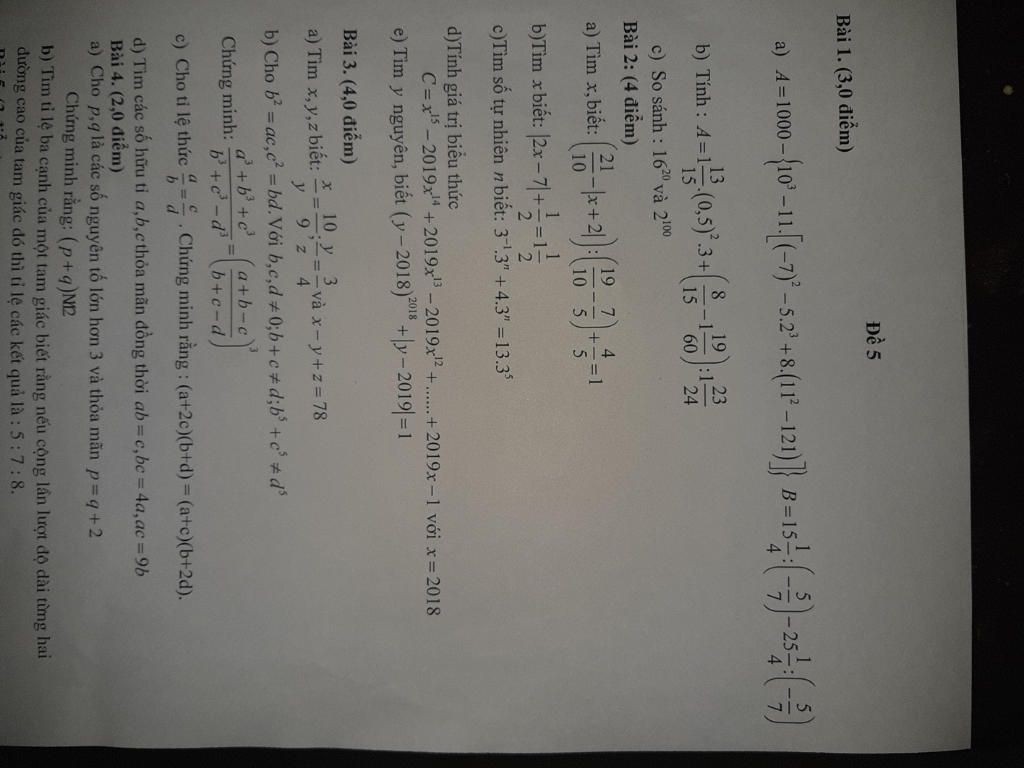 Đề 5
Bài 1. (3,0 điểm)
a) A = 1000 − {10³ − 11.[(−7)² − 5.2³ + 8.(11² − 121)]} B = 15 1/4 : (−5/7) − 25 1/4 : (−5/7)
b) Tính : A = 1 13/15 .(0,5)².3 + (8/15 − 1 19/60) : 1 23/24
c) So sánh : 16²⁰ và 2¹⁰⁰
Bài 2: (4 điểm)
a) Tìm x, biết: (21/10 − |x + 2|) : (19/10 − 7/5) + 4/5 = 1
b)Tìm x biết: |2x − 7| + 1/2 = 1 1/2
c)Tìm số tự nhiên n biết: 3⁻¹.3ⁿ + 4.3ⁿ = 13.3⁵
d)Tính giá trị biểu thức
C = x¹⁵ − 2019x¹⁴ + 2019x¹³ − 2019x¹² + ...... + 2019x − 1 với x = 2018
e) Tìm y nguyên, biết (y − 2018)²⁰¹⁸ + |y − 2019| = 1
Bài 3. (4,0 điểm)
a) Tìm x, y, z biết: x/y = 10/9 ; y/z = 3/4 và x − y + z = 78
b) Cho b² = ac, c² = bd. Với b, c, d ≠ 0; b + c ≠ d; b⁵ + c⁵ ≠ d⁵
Chứng minh: (a³ + b³ + c³)/(b³ + c³ − d³) = ((a + b − c)/(b + c − d))³
c) Cho tỉ lệ thức a/b = c/d . Chứng minh rằng : (a+2c)(b+d) = (a+c)(b+2d).
d) Tìm các số hữu tỉ a, b, c thỏa mãn đồng thời ab = c, bc = 4a, ac = 9b
Bài 4. (2,0 điểm)
a) Cho p, q là các số nguyên tố lớn hơn 3 và thỏa mãn p = q + 2
Chứng minh rằng: (p + q)M12
b) Tìm tỉ lệ ba cạnh của một tam giác biết rằng nếu cộng lần lượt độ dài từng hai
đường cao của tam giác đó thì tỉ lệ các kết quả là : 5 : 7 : 8.